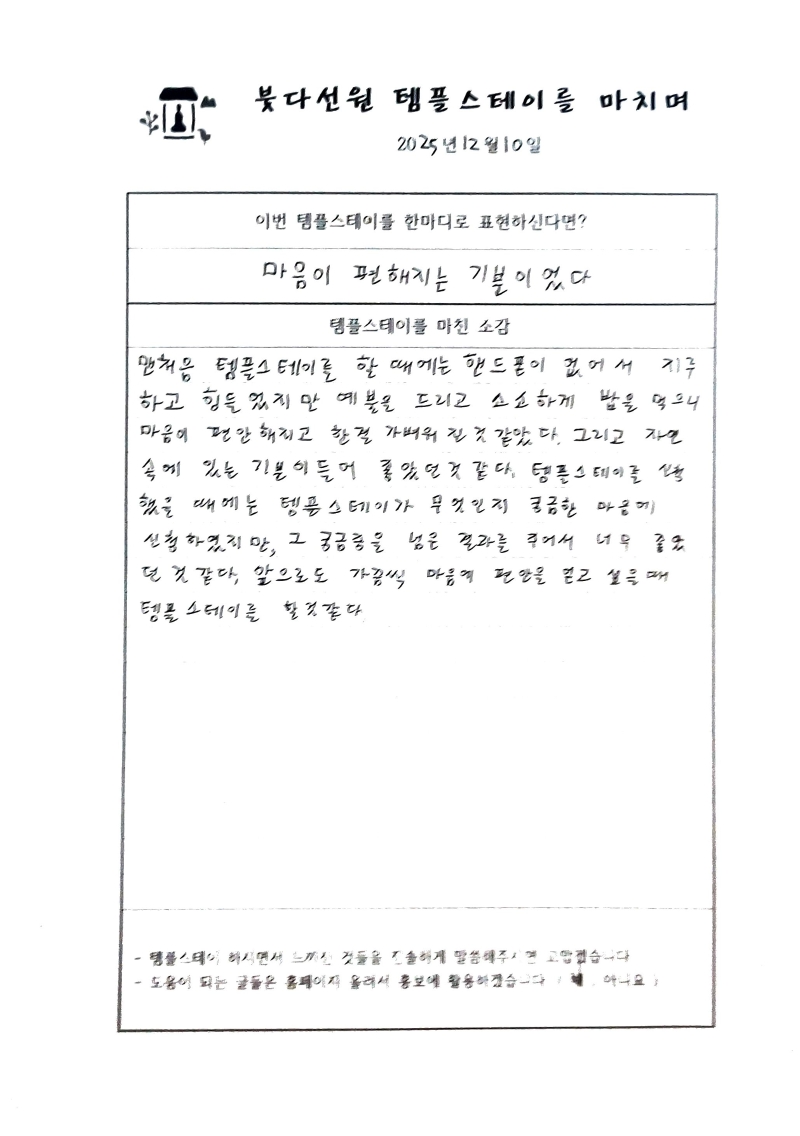 붓다선원 템플스테이를 마치며
2025년 12월 10일
이번 템플스테이를 한마디로 표현하신다면?
마음이 편해지는 기분이었다
템플스테이를 마친 소감
맨처음 템플스테이를 할 때에는 핸드폰이 없어서 지루
하고 힘들었지만 예불을 드리고 소소하게 밥을 먹으니
마음이 편안해지고 한결 가벼워진것 같았다. 그리고 자연
속에 있는 기분이들어 좋았던것 같다. 템플스테이를 신청
했을 때에는 템플스테이가 무엇인지 궁금한 마음에
신청하였지만, 그 궁금증을 넘은 결과를 주어서 너무 좋았
던것 같다, 앞으로도 가끔씩 마음에 편안을 얻고 싶을때
템플스테이를 할것 같다
- 템플스테이 하시면서 느끼신 것들을 진솔하게 말씀해주시면 고맙겠습니다
- 도움이 되는 글들은 홈페이지 올려서 홍보에 활용하겠습니다 ( 네 , 아니요 )